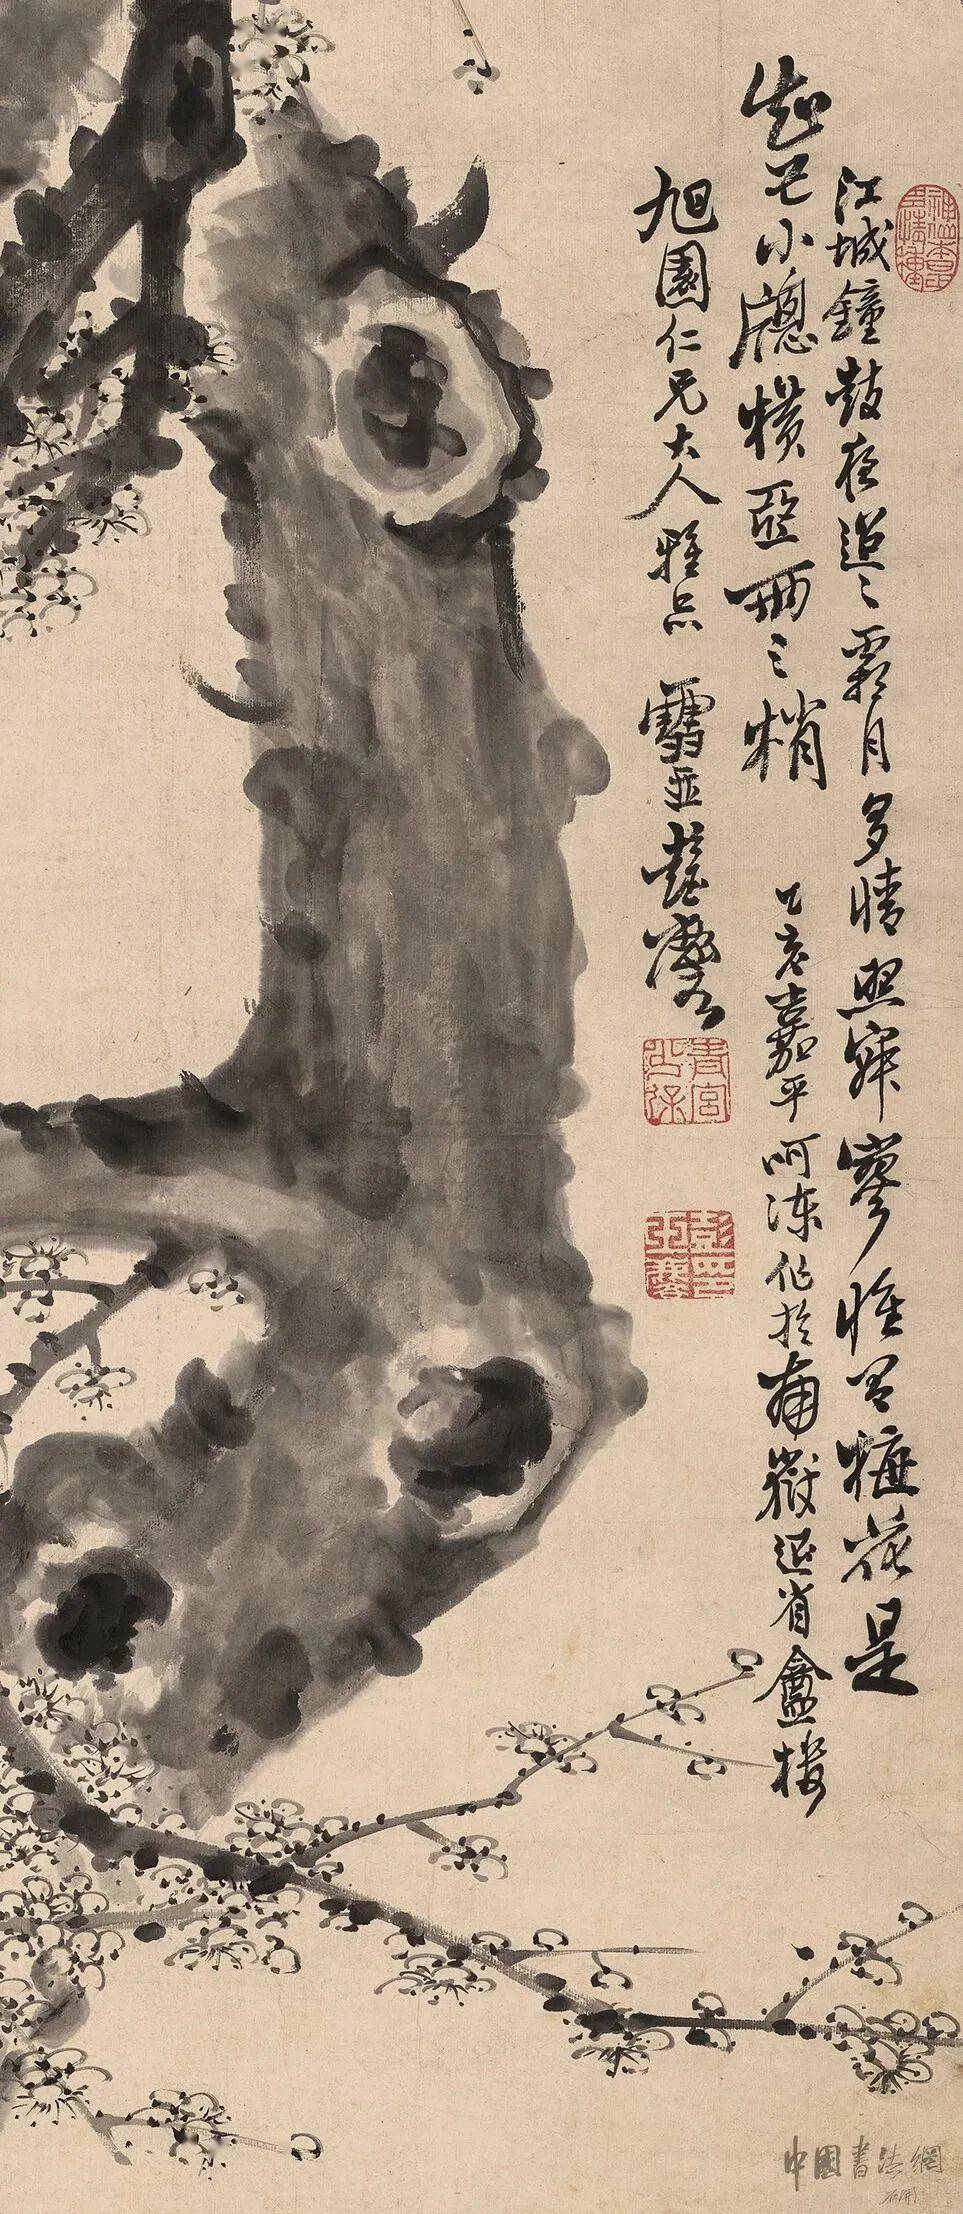 江城鐘鼓夜迢〻霜月多情照寂寥惟有梅花是
知己小窗橫亞兩三梢 乙亥嘉平呵凍作於南嶽退省盦樓
旭園仁兄大人雅正 雪
青宮少保
中國書法網